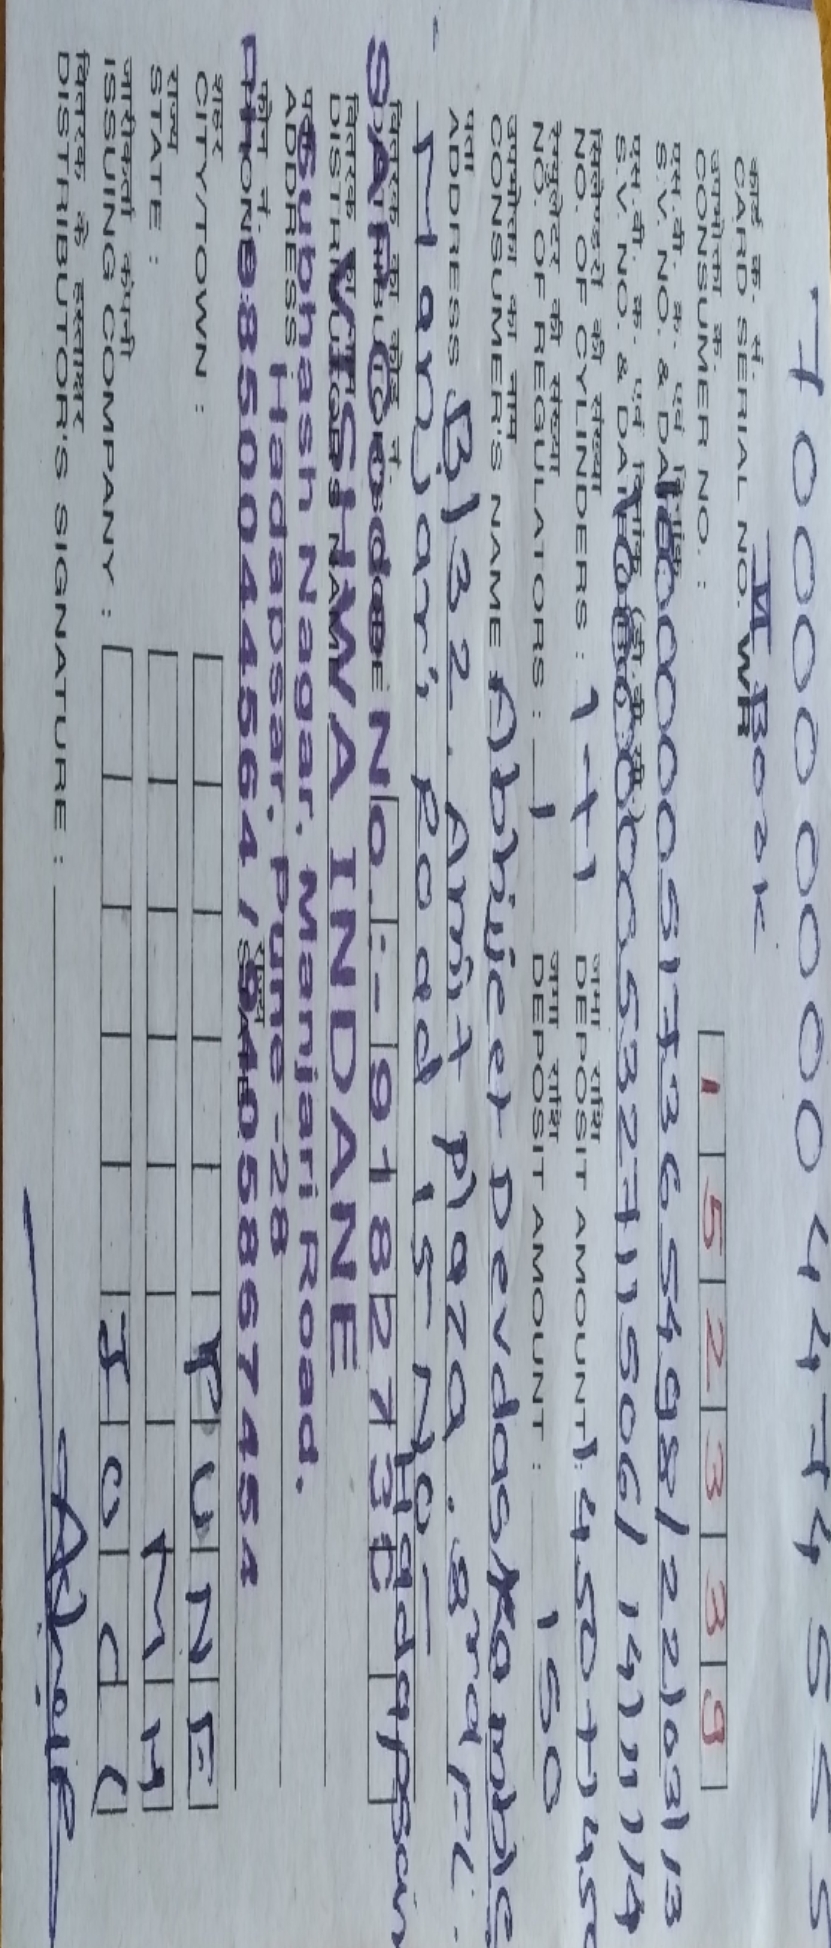 7000000004474555
कार्ड क्र. सं.
CARD SERIAL NO. II Book
WR
उपभोक्ता क्र.
CONSUMER NO. : 152339
एस. वी. क्र. एवं दिनांक
S.V. NO. & DATE 22/03/13
एस. वी. क्र. एवं दिनांक (डी. बी. सी.)
S.V. NO. & DATE 14/11/14
सिलेण्डरों की संख्या जमा राशि
NO. OF CYLINDERS : 1+1 DEPOSIT AMOUNT : 1450+1450
रेग्युलेटर की संख्या जमा राशि
NO. OF REGULATORS : 1 DEPOSIT AMOUNT : 150
उपभोक्ता का नाम
CONSUMER'S NAME Abhijeet Devdas Kamble
पता
ADDRESS B/32. Amit plaza. 3rd FL.
Manjari Road 15 No- Hadapsar
वितरक का कोड नं.
SAP Code No.:- 918273E
वितरक का नाम
DISTRIBUTOR'S NAME VISHWA INDANE
पता Subhash Nagar, Manjari Road,
ADDRESS Hadapsar, Pune -28
फोन नं. राज्य
PHONE 9850044564 / 9405867454
शहर
CITY/TOWN : PUNE
राज्य
STATE : MH
जारीकर्ता कंपनी
ISSUING COMPANY : IOCL
वितरक के हस्ताक्षर
DISTRIBUTOR'S SIGNATURE :